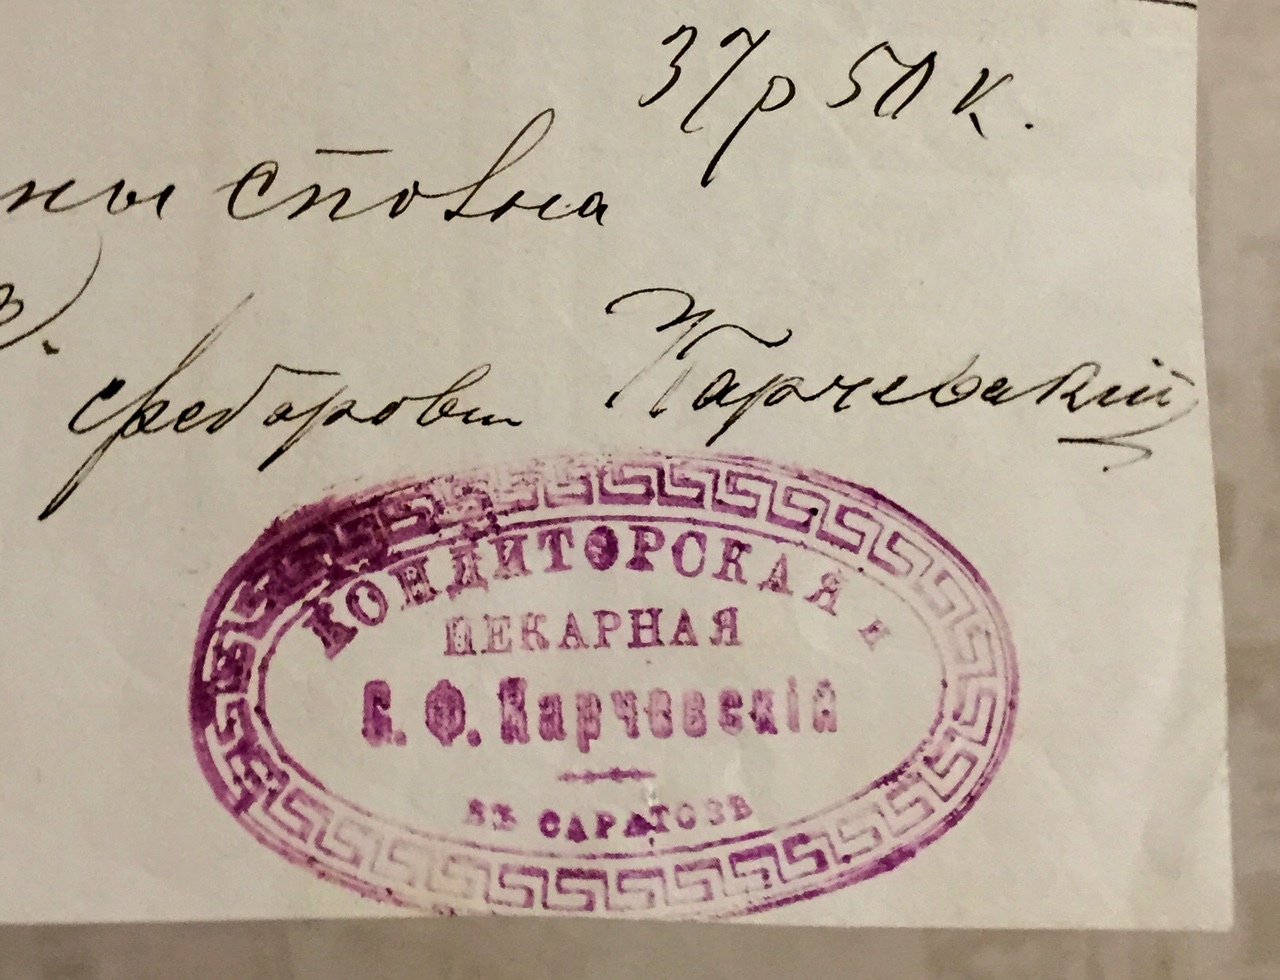 37р 50 к.
ны сполна
Федорович Карчевский
КОНДИТОРСКАЯ и
ПЕКАРНАЯ
С. Ф. Карчевскій
ВЪ САРАТОВѢ